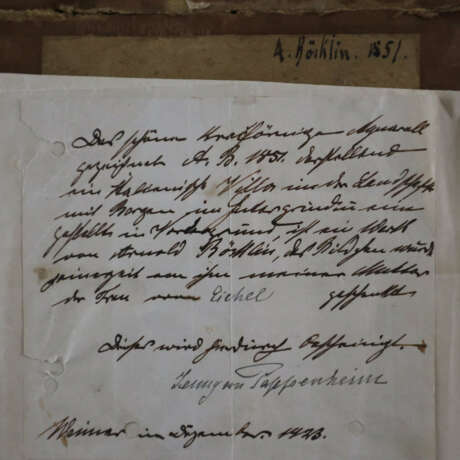 A. Böcklin. 1851.
Das schöne Aquarell
gezeichnet A. B. 1851. darstellend
ein Italienische Villa in der Landschaft
mit Bergen im Hintergrunde ein
in Vordergrund ist ein Werk
von Arnold Böcklin, das Bildchen wurde
seinerzeit von ihm meiner Mutter
der Frau von Eichel geschenkt
Dieses wird hiedurch bescheinigt.
Jenny von Pappenheim
Weimar im Dezember. 1923.